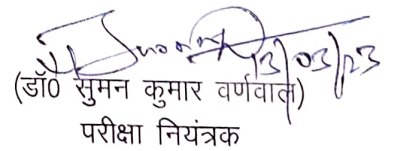 13/03/23
(डॉ0 सुमन कुमार वर्णवाल)
परीक्षा नियंत्रक